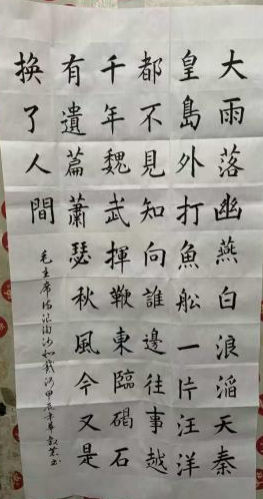 大雨落幽燕白浪滔天秦
皇島外打魚船一片汪洋
都不見知向誰邊往事越
千年魏武揮鞭東臨碣石
有遺篇蕭瑟秋風今又是
換了人間
毛主席诗浪淘沙北戴河甲辰年书